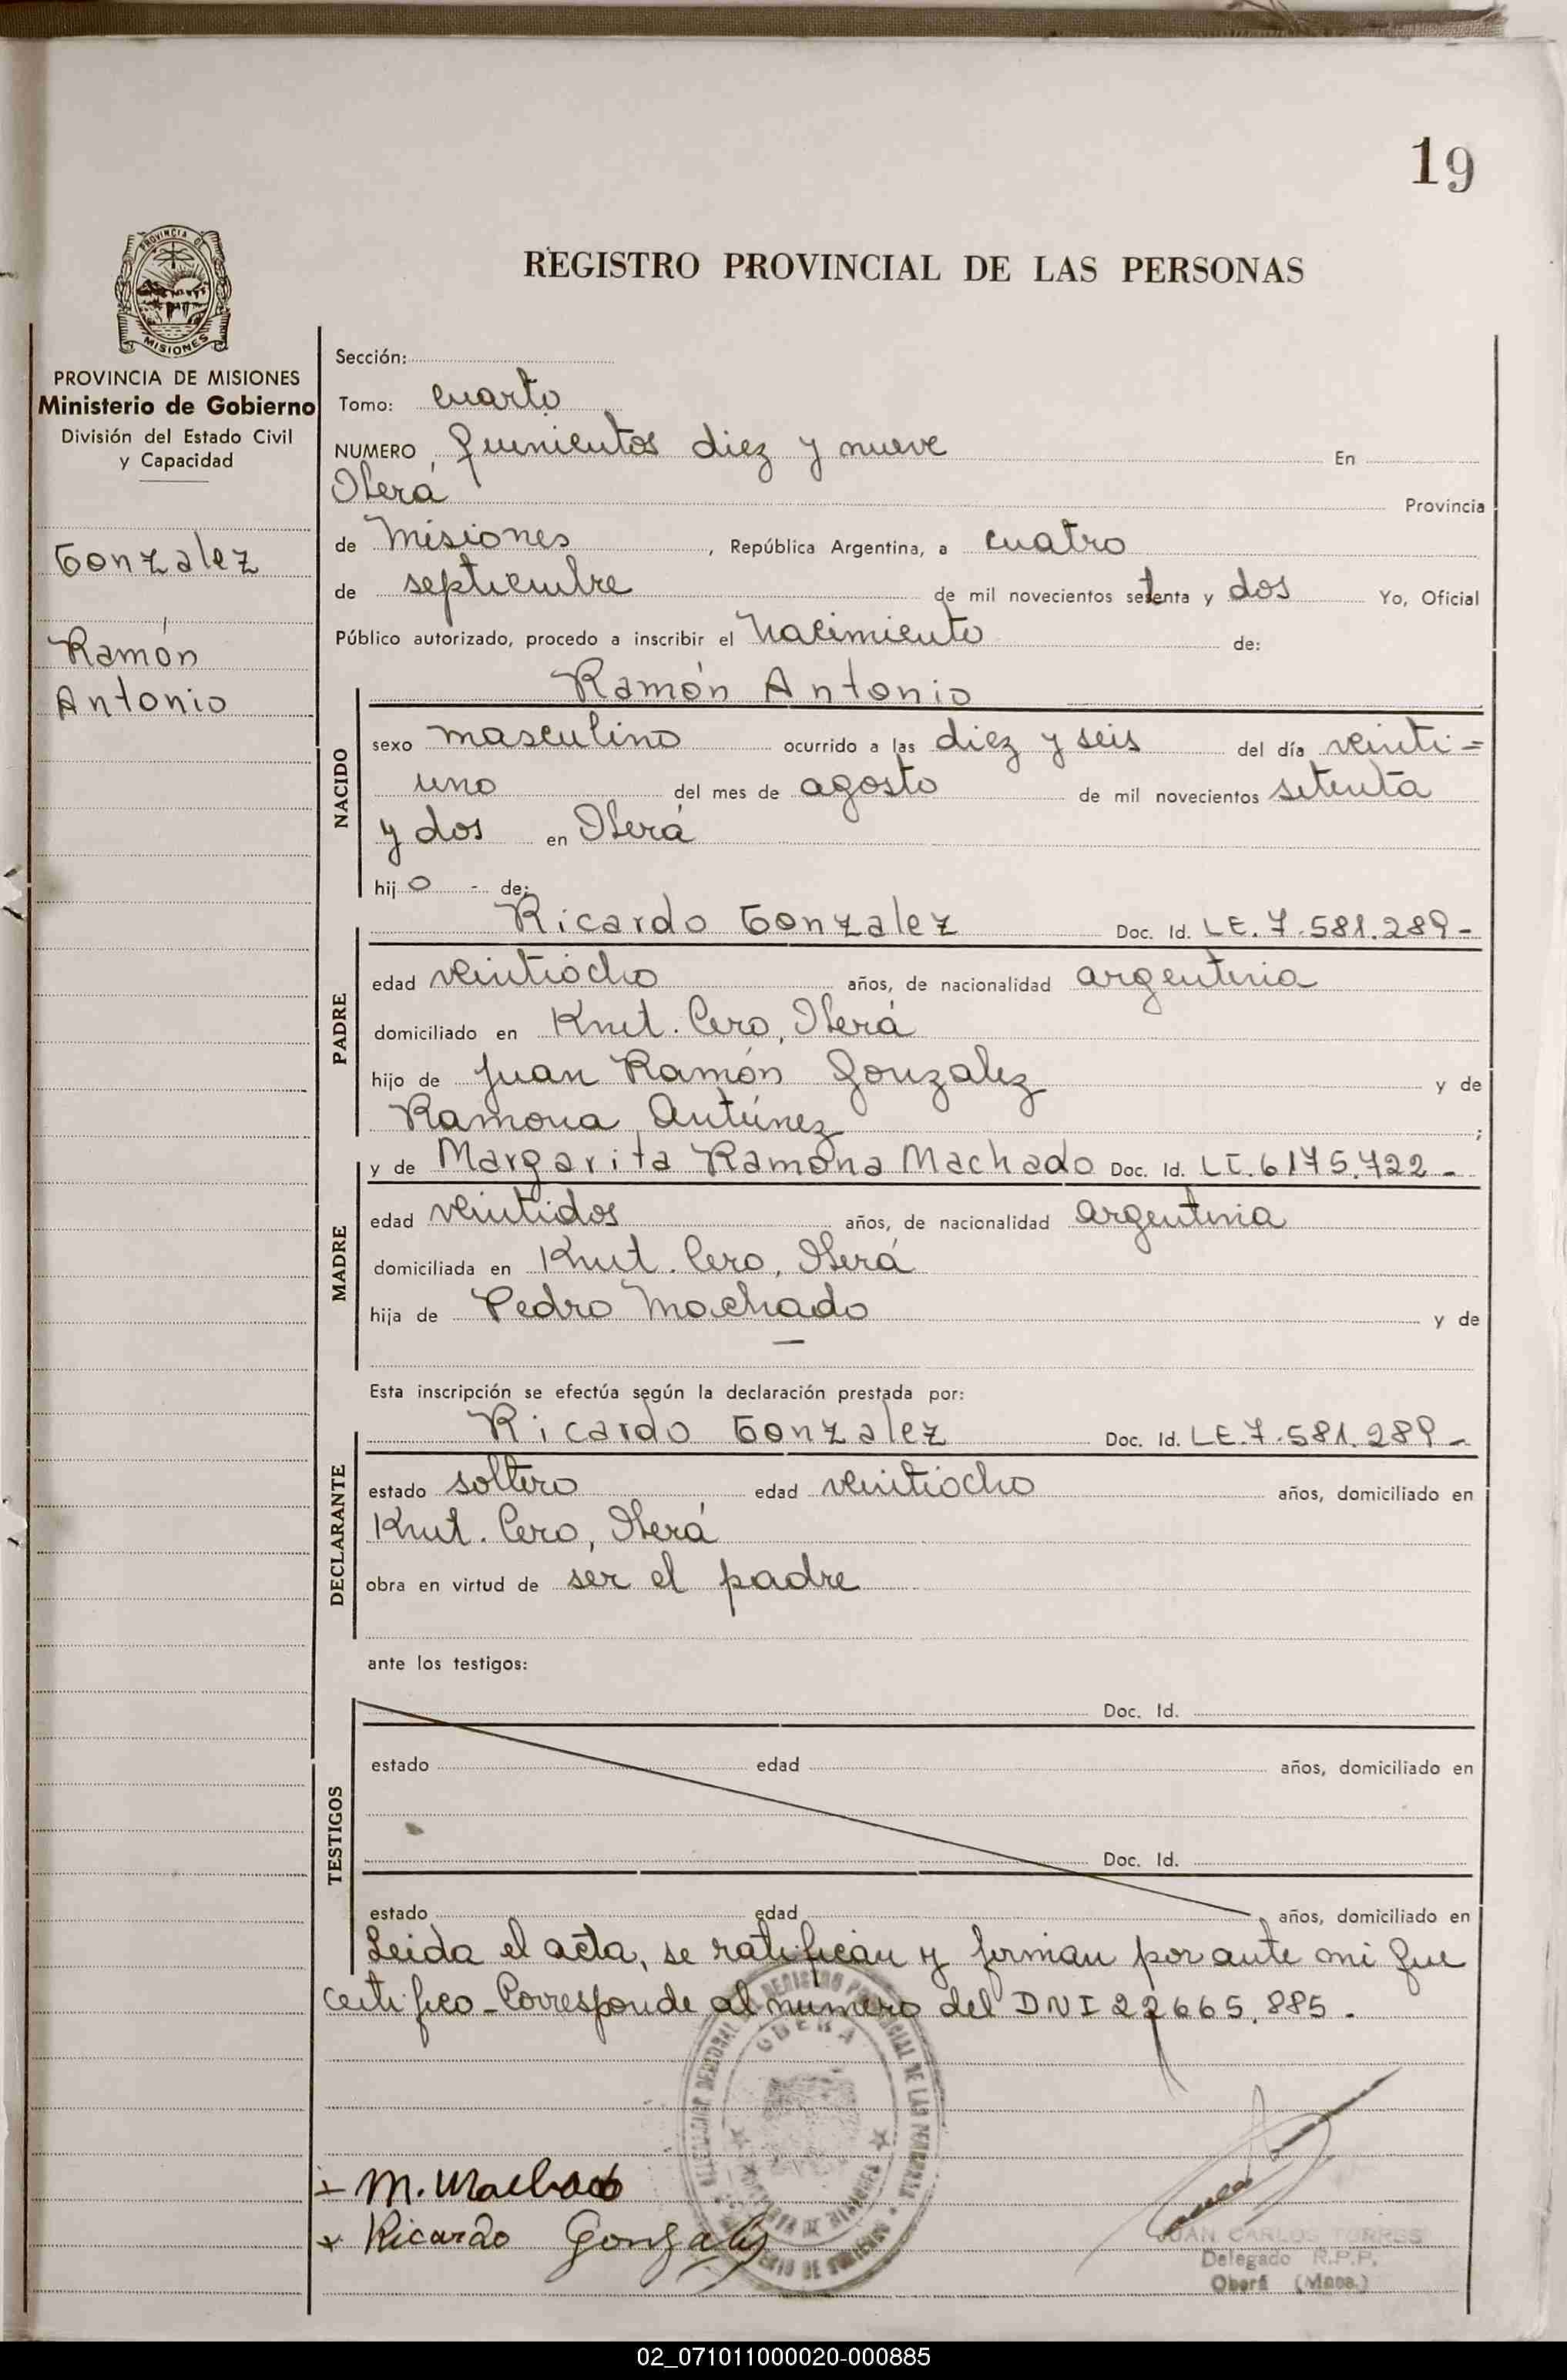 19
PROVINCIA DE
MISIONES
REGISTRO PROVINCIAL DE LAS PERSONAS
PROVINCIA DE MISIONES
Ministerio de Gobierno
División del Estado Civil
y Capacidad
Gonzalez
Ramón
Antonio
Sección:
Tomo: cuarto
NUMERO Quinientos diez y nueve En
Oberá Provincia
de Misiones, República Argentina, a cuatro
de septiembre de mil novecientos setenta y dos Yo, Oficial
Público autorizado, procedo a inscribir el Nacimiento de:
NACIDO
Ramón Antonio
sexo masculino ocurrido a las diez y seis del día veinti=
uno del mes de agosto de mil novecientos setenta
y dos en Oberá
hijo - de:
PADRE
Ricardo Gonzalez Doc. Id. LE. 7.581.289-
edad veintiocho años, de nacionalidad argentina
domiciliado en Kmt. Cero, Oberá
hijo de Juan Ramón Gonzalez y de
Ramona Antúnez;
MADRE
y de Margarita Ramona Machado Doc. Id. LC. 6175.722-
edad veintidos años, de nacionalidad argentina
domiciliada en Kmt. Cero, Oberá
hija de Pedro Machado y de
—
Esta inscripción se efectúa según la declaración prestada por:
DECLARANTE
Ricardo Gonzalez Doc. Id. LE. 7.581.289-
estado soltero edad veintiocho años, domiciliado en
Kmt. Cero, Oberá
obra en virtud de ser el padre
ante los testigos:
TESTIGOS
Doc. Id.
estado edad años, domiciliado en
Doc. Id.
estado edad años, domiciliado en
Leida el acta, se ratifican y firman por ante mi que
certifico - Corresponde al numero del DNI 22665.885.
OBERA
M. Machado
Ricardo Gonzalez
JUAN CARLOS TORRES
Delegado R.P.P.
Oberá (Mnes.)
02_071011000020-000885